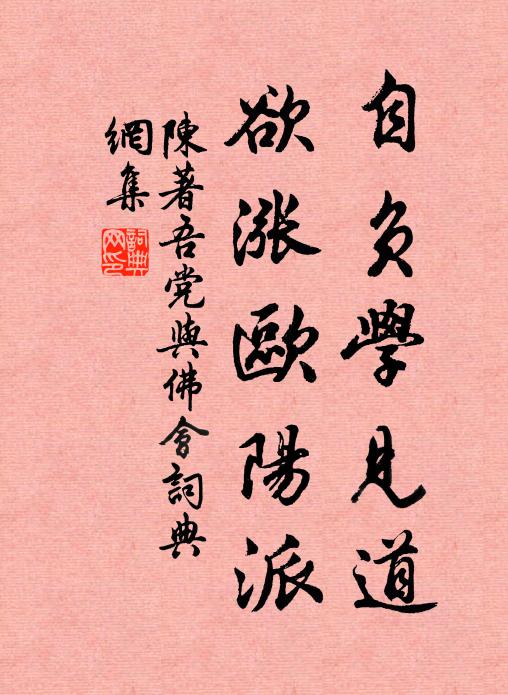 自負學見道
欲漲歐陽派
陳著吾党與佛會詞典
網集
詞典網印